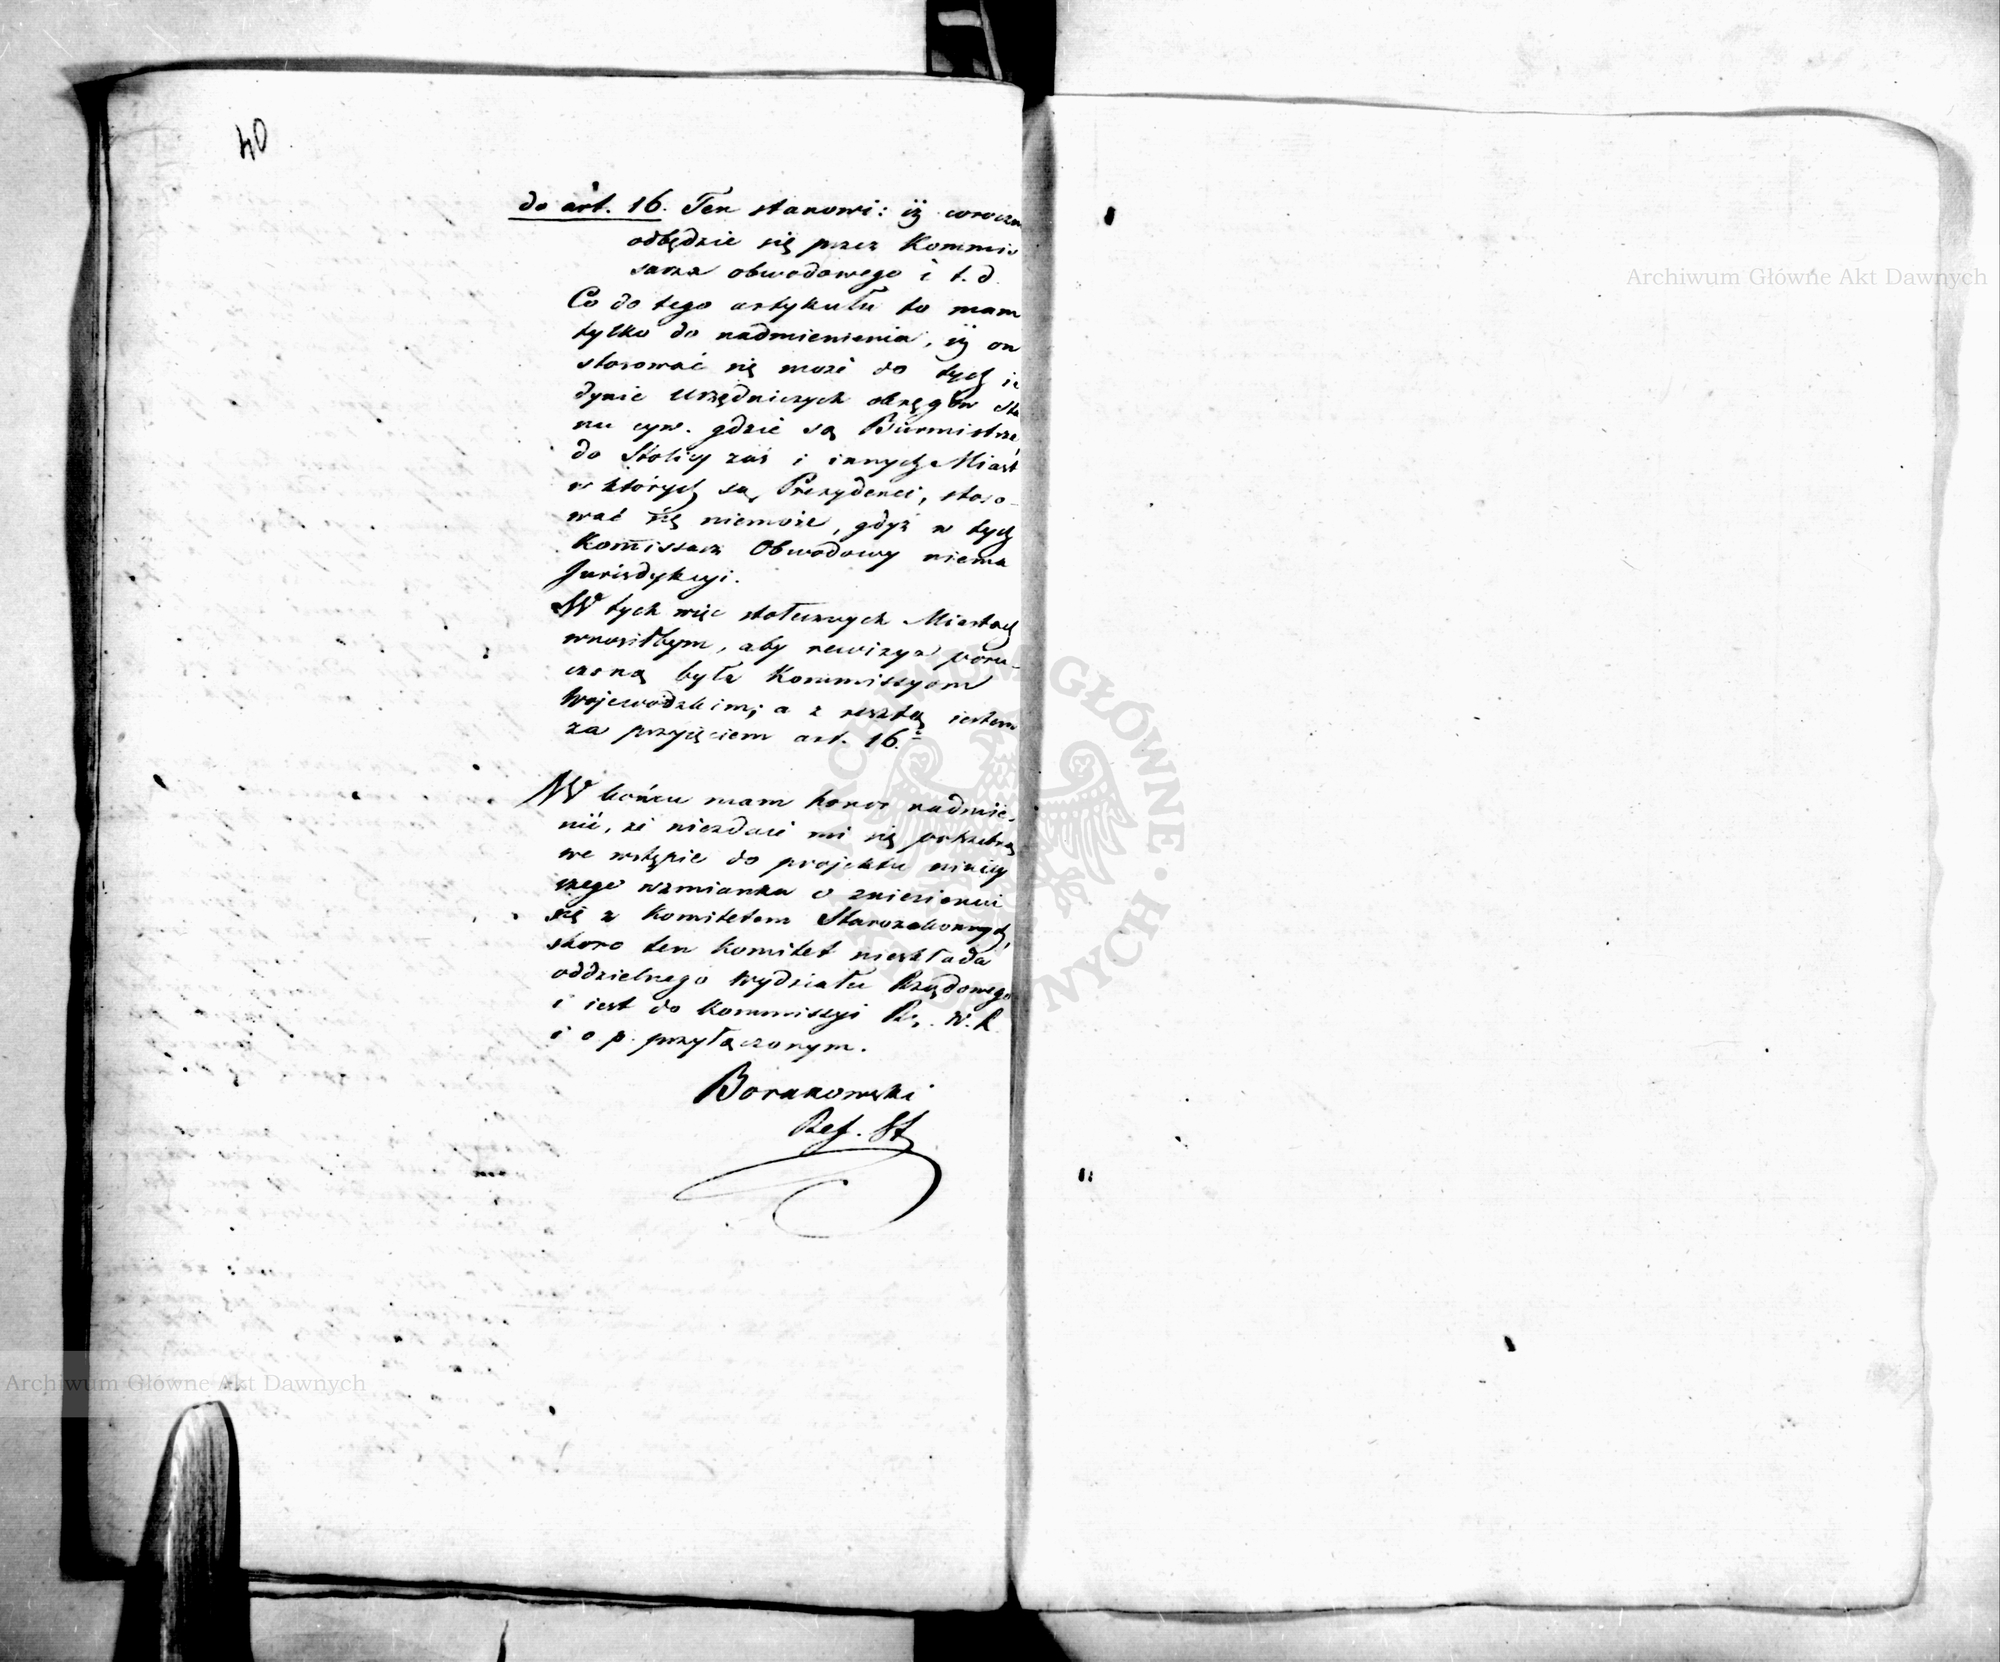 40
do art. 16. Ten stanowi: iż coroczn
odbędzie się przez Kommis
sarza obwodowego i t. d.
Co do tego artykułu to mam
tylko do nadmienienia, iż on
stosować się może do tych ie
dynie Urzędniczych okręgów sta
nu cyw. gdzie są Burmistrze
do Stolicy zaś i innych Miast
w których są Prezydenci, stoso-
wać się niemoże, gdyż w tych
Kommissarz Obwodowy niema
Jurisdykcyi.
W tych więc stołecznych Miastach
wnosiłbym, aby rewizya poru-
czoną była Kommissyom
Wojewodzkim; a z resztą iestem
za przyięciem art. 16.
W końcu mam honor nadmie-
nić, że niezdaie mi się potrzebną
we wstępie do projektu ninięy
szego wzmianka o zniesieniu
się z Komitetem Starozakonnych,
skoro ten Komitet nieskłada
oddzielnego Wydziału Rządowego
i iest do Kommissyi Rz. W. R.
i o. p. przyłączonym.
Ref. St
Archiwum Główne Akt Dawnych
Archiwum Główne Akt Dawnych
ARCHIWUM GŁÓWNE AKT DAWNYCH